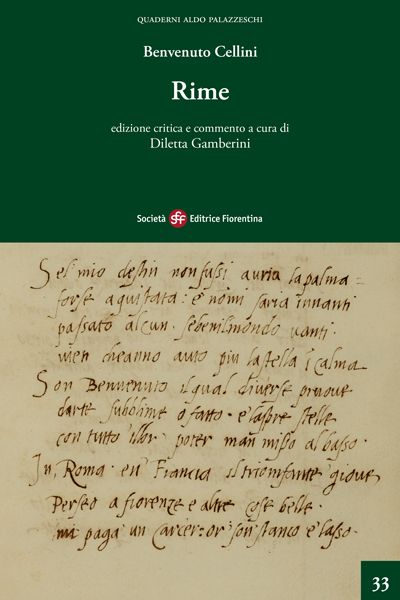 QUADERNI ALDO PALAZZESCHI
Benvenuto Cellini
Rime
edizione critica e commento a cura di
Diletta Gamberini
Società sef Editrice Fiorentina
Sel mio destin non fussi auria la palma
forse aquistata: e nomi saria innanti
passato alcun. sebenilmondo uanti
men cheanno auto piu la stella i calma
Son Benuenuto il qual diuerse pruoue
darte subblime ò fatto. e laspre stelle
con tutto illor poter màn misso al basso.
In, Roma. en Francia il triomfante gioue
Perseo a fiorenze e altre cose belle.
mi paga un carcer: or son stanco e lasso.
33